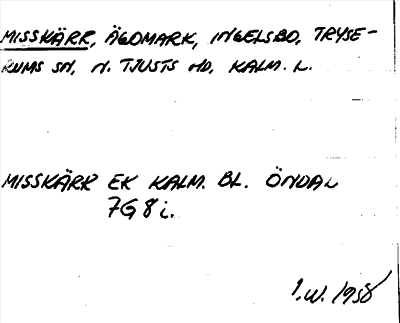 MISSKÄRR, ÄGOMARK, INGELSBO, TRYSE-
RUMS SN, N. TJUSTS HD, KALM. L.
MISSKÄRR EK KALM. BL. ÖNDAL
7G 8 i.
I.W. 1958